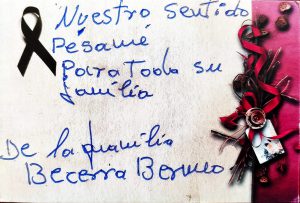 Nuestro sentido
Pésame
Para Toda su
familia
De la familia
Becerra Bermeo